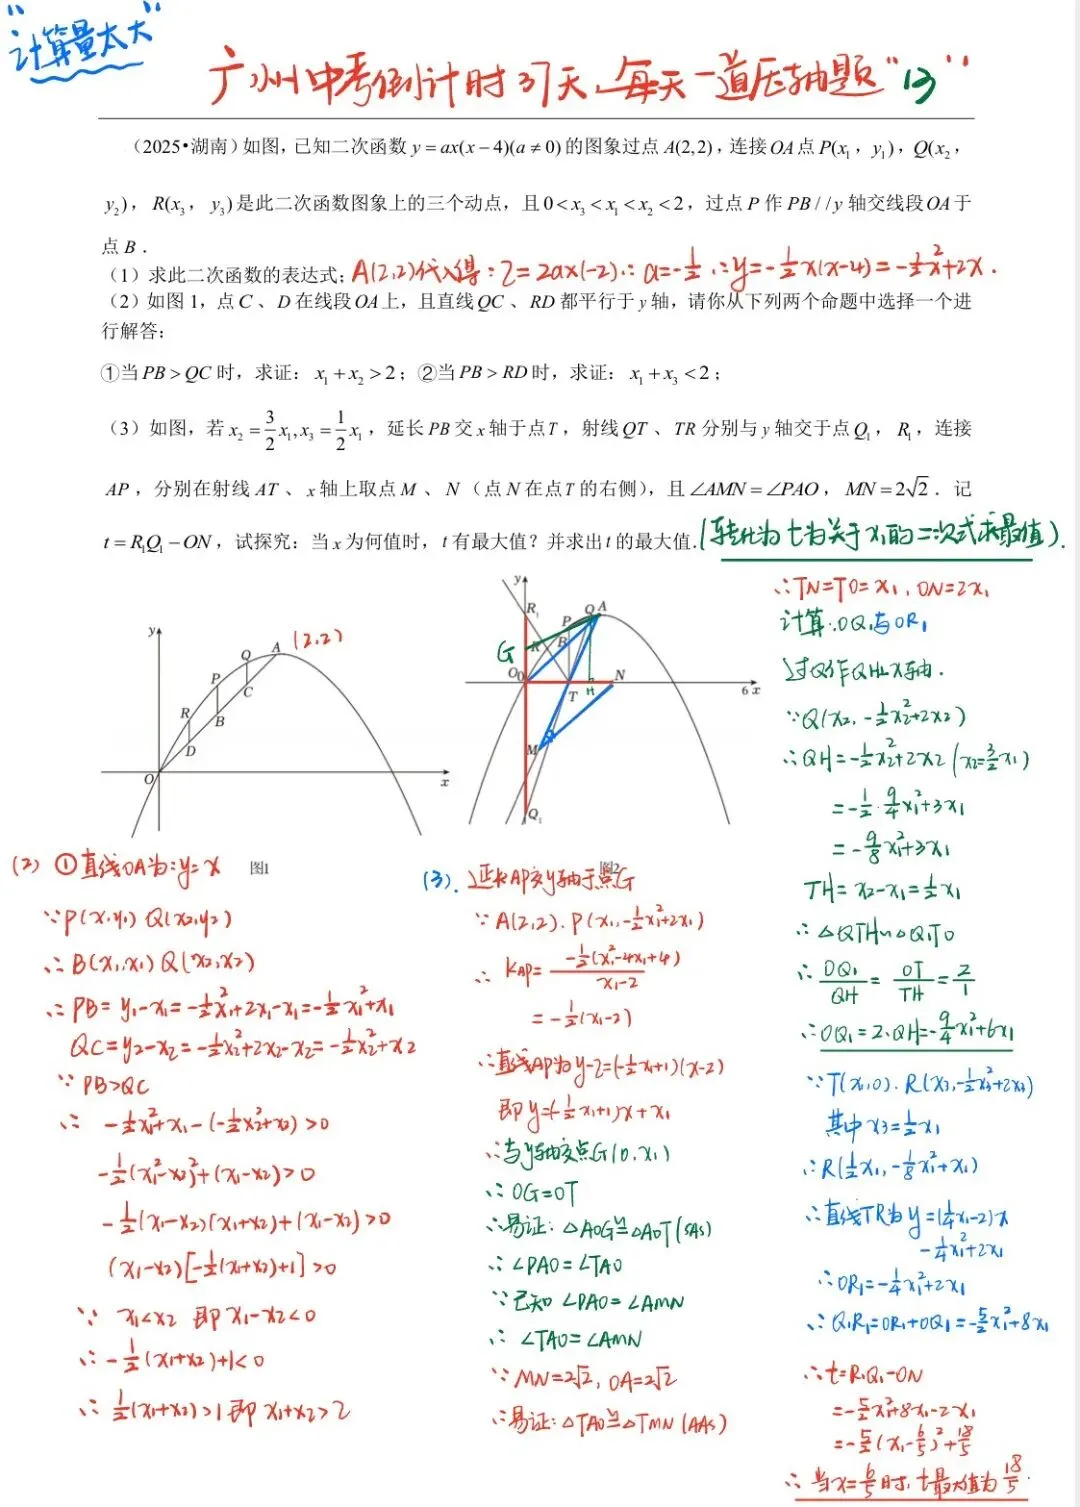 "计算量太大"
广州中考倒计时37天,每天一道压轴题"13"
（2025•湖南）如图，已知二次函数 y = ax(x − 4)(a ≠ 0) 的图象过点 A(2,2)，连接 OA 点 P(x₁，y₁)，Q(x₂，
y₂)，R(x₃，y₃) 是此二次函数图象上的三个动点，且 0 < x₃ < x₁ < x₂ < 2，过点 P 作 PB / / y 轴交线段 OA 于
点 B．
（1）求此二次函数的表达式; A(2,2)代入得：2=2a×(-2)∴a=-1/2∴y=-1/2x(x-4)=-1/2x²+2x.
（2）如图 1，点 C 、D 在线段 OA 上，且直线 QC 、RD 都平行于 y 轴，请你从下列两个命题中选择一个进
行解答：
①当 PB > QC 时，求证：x₁ + x₂ > 2；②当 PB > RD 时，求证：x₁ + x₃ < 2；
（3）如图，若 x₂ = 3/2 x₁, x₃ = 1/2 x₁，延长 PB 交 x 轴于点 T，射线 QT 、TR 分别与 y 轴交于点 Q₁，R₁，连接
AP，分别在射线 AT 、x 轴上取点 M 、N（点 N 在点 T 的右侧），且 ∠AMN = ∠PAO，MN = 2√2．记
t = R₁Q₁ − ON，试探究：当 x 为何值时，t 有最大值？并求出 t 的最大值.(转化为t为关于x₁的二次式求最值).
y
A (2,2)
Q
P
C
R
B
D
O
x
图1
y
R₁
P
Q
A
G
R
B
O
T
H
N
6 x
M
Q₁
图2
(2) ①直线OA为:y=x
∵P(x₁,y₁) Q(x₂,y₂)
∴B(x₁,x₁) Q(x₂,x₂)
∴PB=y₁-x₁=-1/2x₁²+2x₁-x₁=-1/2x₁²+x₁
QC=y₂-x₂=-1/2x₂²+2x₂-x₂=-1/2x₂²+x₂
∵PB>QC
∴ -1/2x₁²+x₁-(-1/2x₂²+x₂)>0
-1/2(x₁²-x₂²)+(x₁-x₂)>0
-1/2(x₁-x₂)(x₁+x₂)+(x₁-x₂)>0
(x₁-x₂)[-1/2(x₁+x₂)+1]>0
∵ x₁<x₂ 即x₁-x₂<0
∴-1/2(x₁+x₂)+1<0
∴1/2(x₁+x₂)>1即x₁+x₂>2
(3). 延长AP交y轴于点G
∵A(2,2).P(x₁,-1/2x₁²+2x₁)
∴ KAP= -1/2(x₁²-4x₁+4) / x₁-2
=-1/2(x₁-2)
∴直线AP为y-2=(-1/2x₁+1)(x-2)
即y=(-1/2x₁+1)x+x₁
∴与y轴交点G(0,x₁)
∴OG=OT
∴易证:△AOG≌△AOT(SAS)
∴∠PAO=∠TAO
∵已知∠PAO=∠AMN
∴ ∠TAO=∠AMN
∵MN=2√2, OA=2√2
∴易证:△TAO≌△TMN(AAS)
∴TN=TO=x₁, ON=2x₁
计算:OQ₁与OR₁
过Q作QH⊥x轴.
∵Q(x₂,-1/2x₂²+2x₂)
∴QH=-1/2x₂²+2x₂(x₂=3/2x₁)
=-1/2·9/4x₁²+3x₁
=-9/8x₁²+3x₁
TH=x₂-x₁=1/2x₁
∴△QTH∽△Q₁TO
∴OQ₁/QH=OT/TH=2/1
∴OQ₁=2·QH=-9/4x₁²+6x₁
∵T(x₁,0).R(x₃,-1/2x₃²+2x₃)
其中x₃=1/2x₁
∴R(1/2x₁,-1/8x₁²+x₁)
∴直线TR为y=(1/4x₁-2)x
-1/4x₁²+2x₁
∴OR₁=-1/4x₁²+2x₁
∴Q₁R₁=OR₁+OQ₁=-5/2x₁²+8x₁
∴t=R₁Q₁-ON
=-5/2x₁²+8x₁-2x₁
=-5/2(x₁-6/5)²+18/5
∴当x=6/5时,t最大值为18/5.